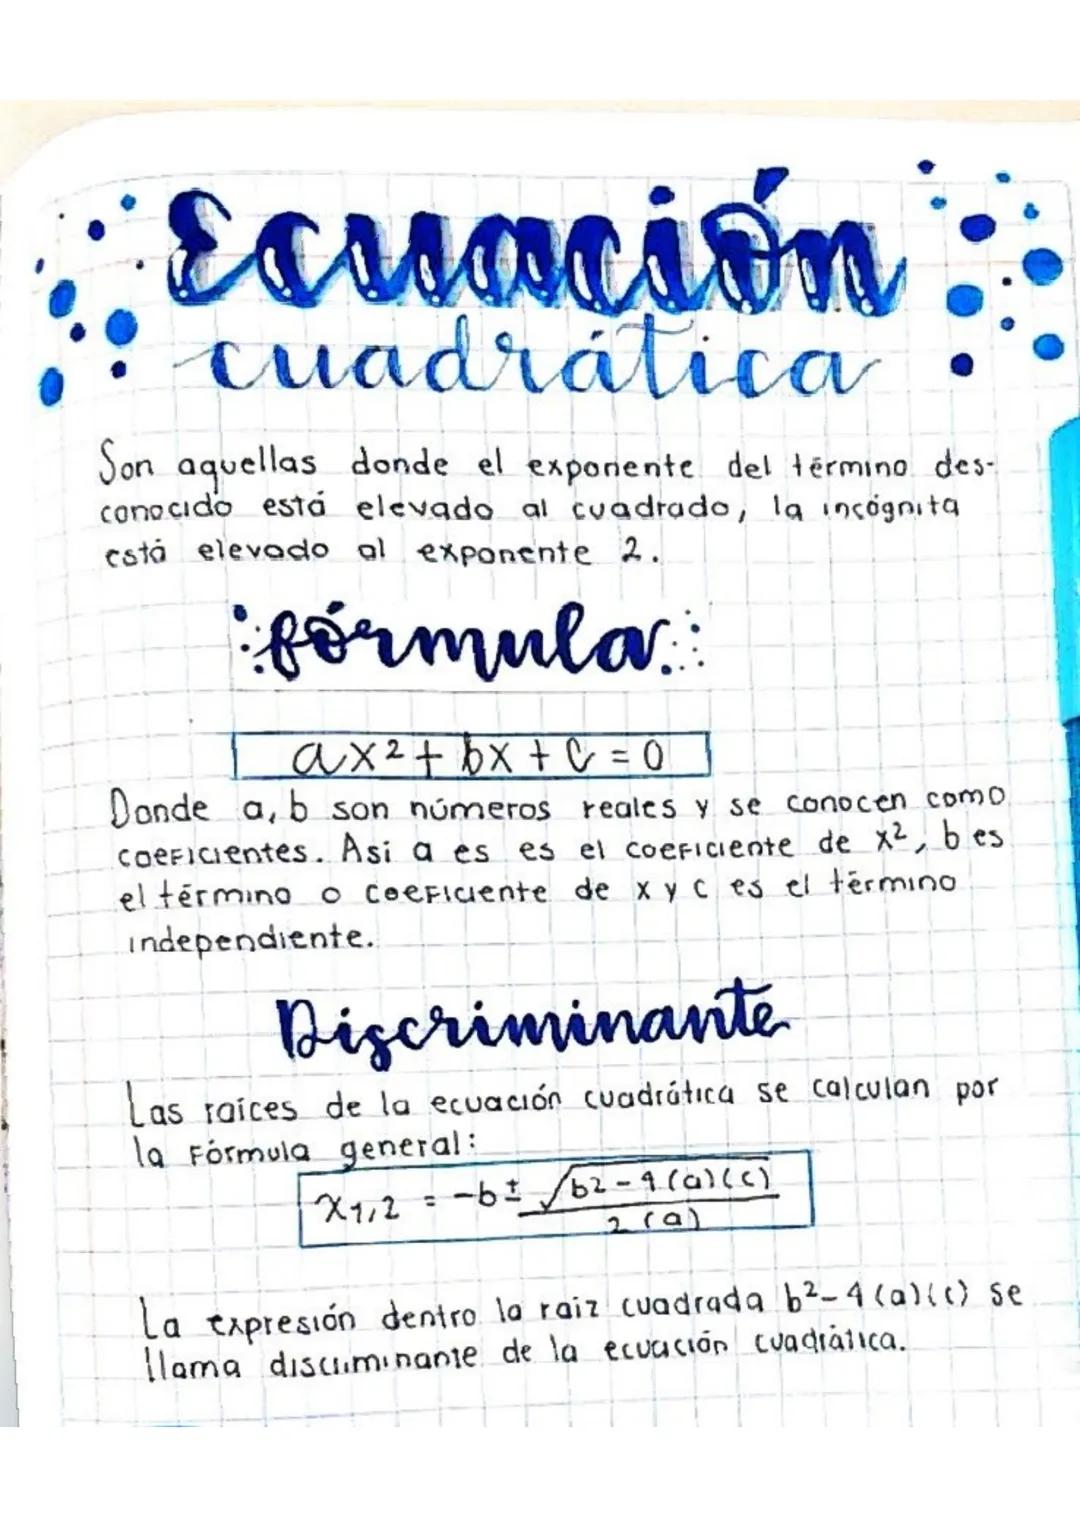 Ecuación
cuadrática
Son aquellas donde el exponente del término des-
conocido está elevado al cuadrado, la incógnita
está elevado al exponente 2.
fórmula
ax² + bx + c = 0
Donde a, b son números reales y se conocen como
coeficientes. Asi a es es el coeficiente de x², b es
el término o coeficiente de x y c es el término
independiente.
Discriminante
Las raíces de la ecuación cuadrática se calculan por
la fórmula general:
x1,2 = -b ± √b² - 4(a)(c)
2(a)
La expresión dentro la raiz cuadrada b² - 4(a)(c) se
llama discriminante de la ecuación cuadrática.